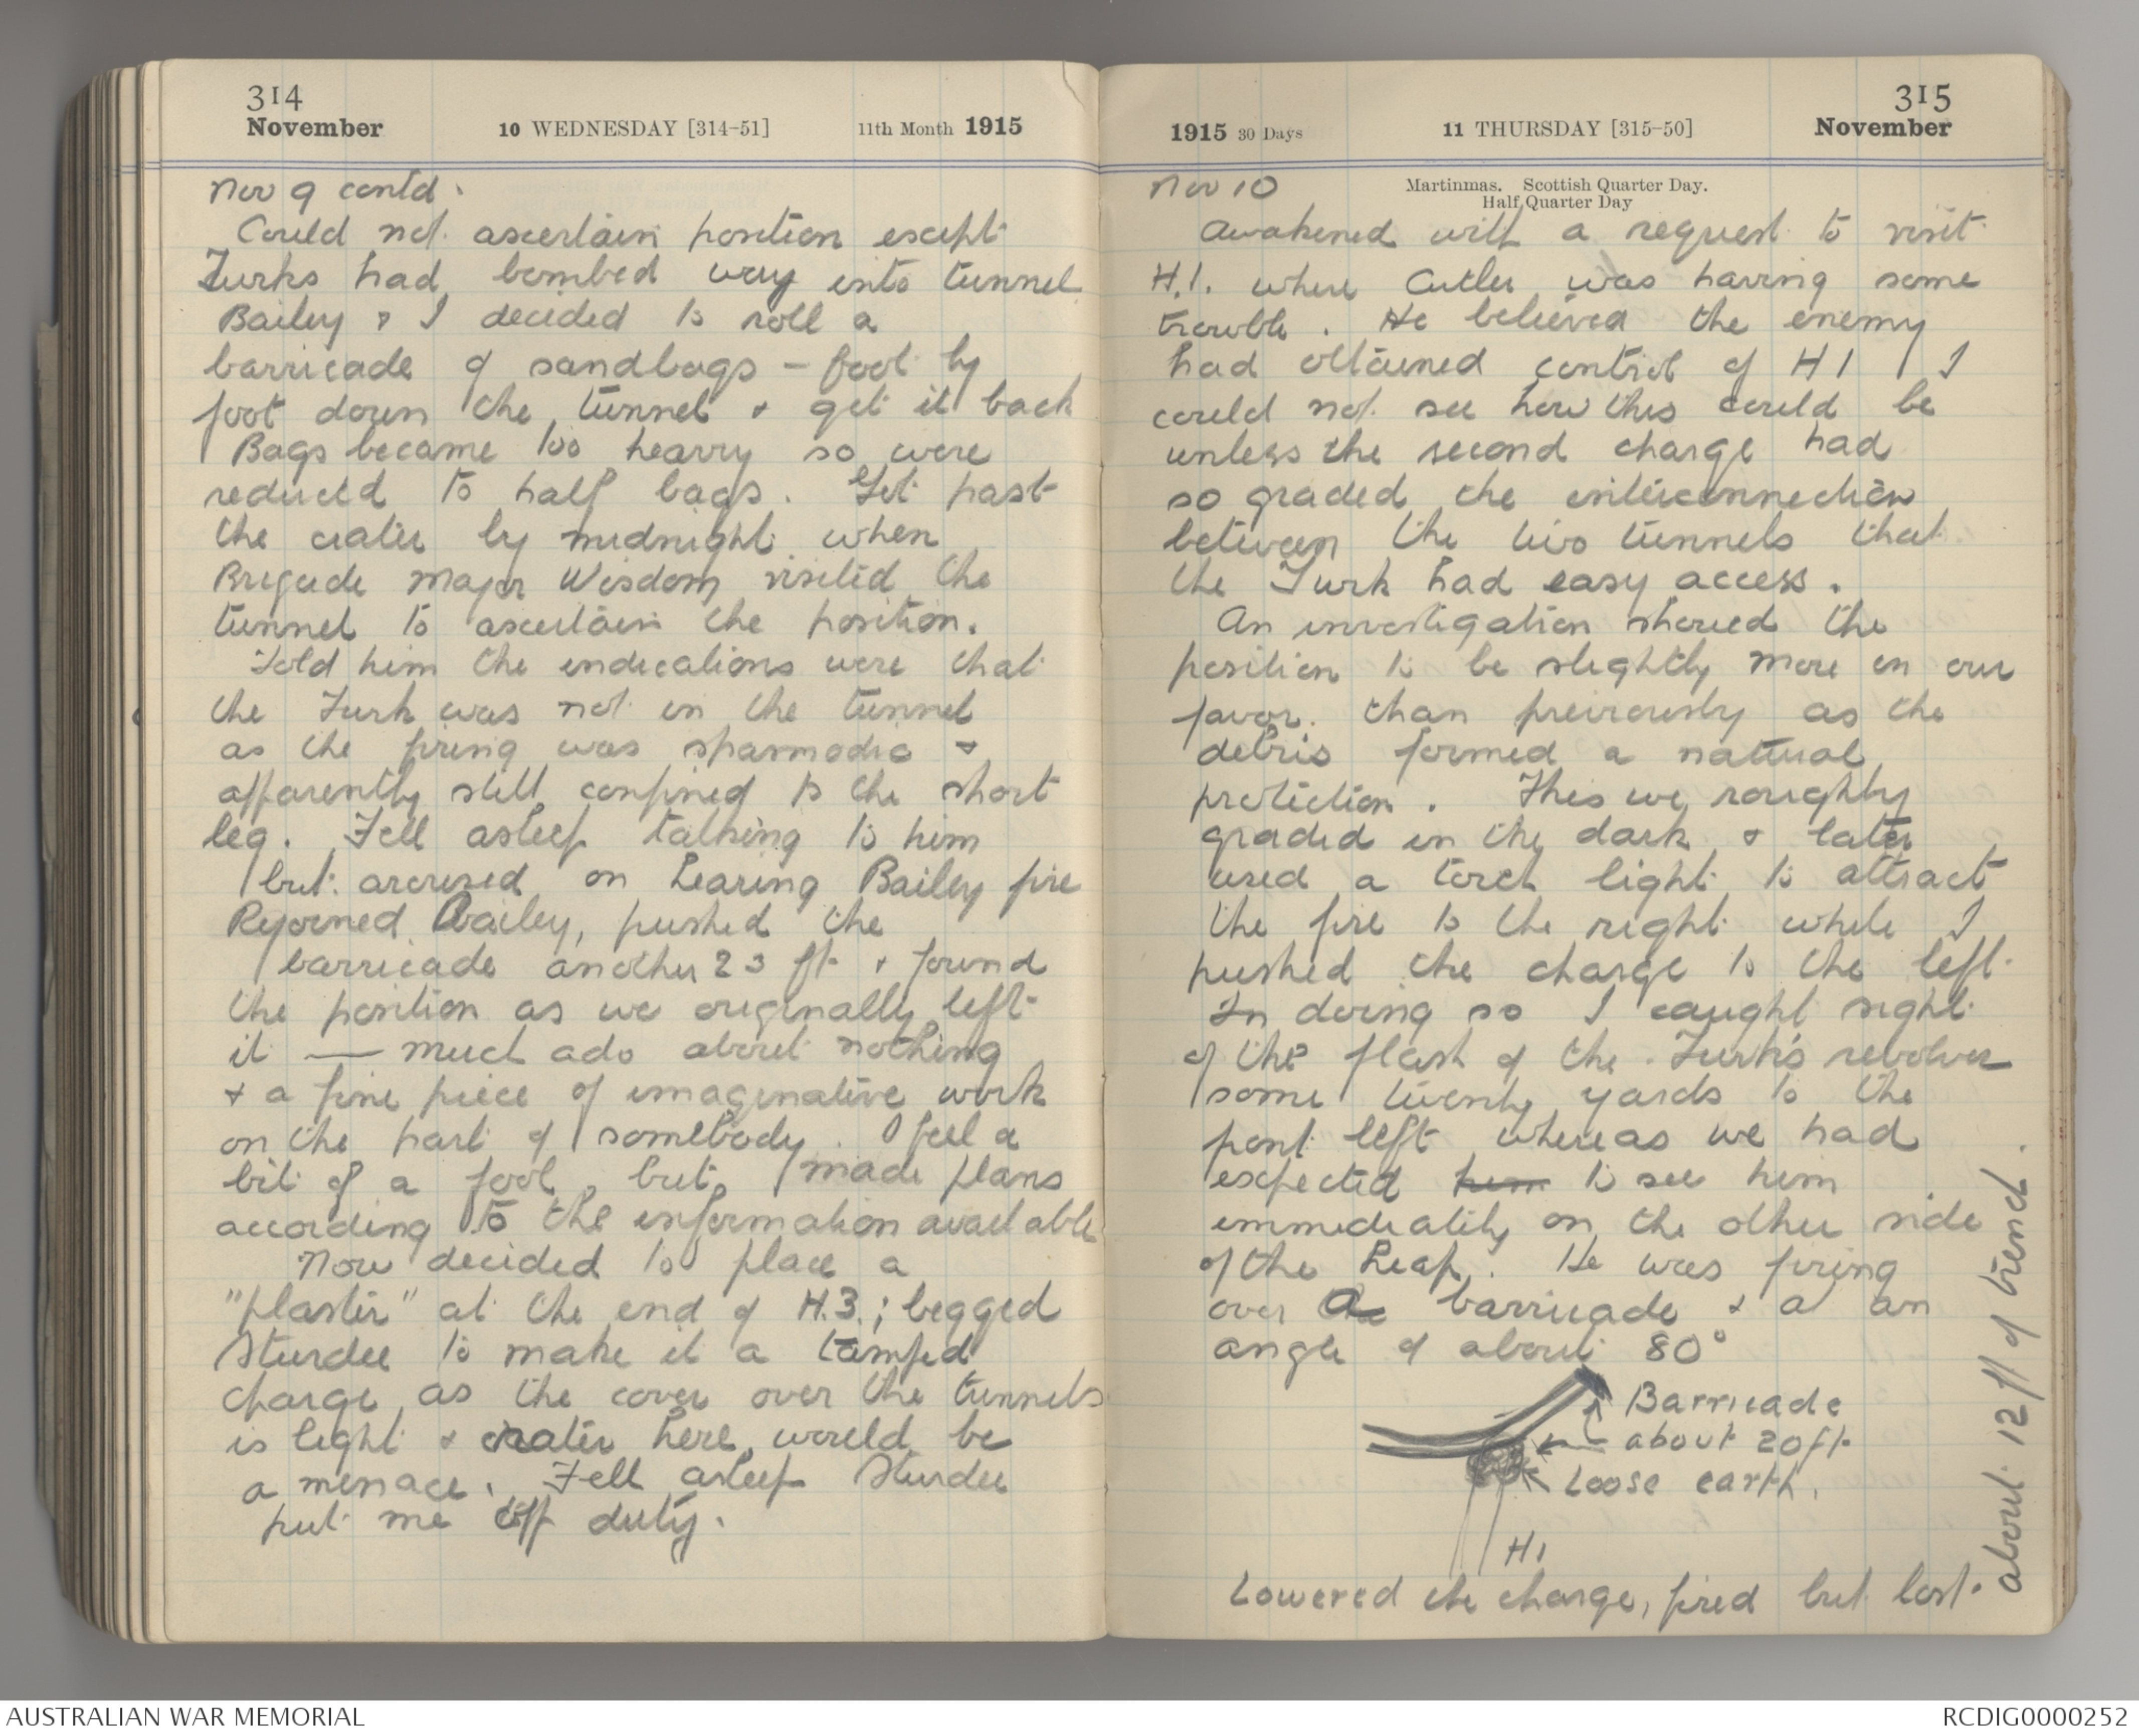 314
November 10 WEDNESDAY [314-51] 11th Month 1915
Nov 9 contd.
Could not ascertain position except
Turks had bombed way into tunnel
Bailey & I decided to roll a
barricade of sandbags - foot by
foot down the tunnel & get it back
Bags became too heavy so were
reduced to half bags. Got past
the crater by midnight when
Brigade Major Wisdom visited the
tunnel to ascertain the position.
Told him the indications were that
the Turk was not in the tunnel
as the firing was spasmodic &
apparently still confined to the short
leg. Fell asleep talking to him
but aroused on hearing Bailey fire
Rejoined Bailey, pushed the
barricade another 23 ft & found
the position as we originally left
it — much ado about nothing
& a fine piece of imaginative work
on the part of somebody. I feel a
bit of a fool, but made plans
according to the information available
Now decided to place a
"plaster" at the end of H.3.; begged
Sturdee to make it a tamped
charge as the cover over the tunnels
is light & crater here would be
a menace. Fell asleep Sturdee
put me off duty.
315
1915 30 Days 11 THURSDAY [315-50] November
Martinmas. Scottish Quarter Day.
Half Quarter Day
Nov 10
Awakened with a request to visit
H.1. where Cutler was having some
trouble. He believed the enemy
had obtained control of H1 I
could not see how this could be
unless the second charge had
so graded the interconnection
between the two tunnels that
the Turk had easy access.
An investigation showed the
position to be slightly more in our
favor. than previously as the
debris formed a natural
protection. This we roughly
graded in the dark & later
used a torch light to attract
the fire to the right while I
pushed the charge to the left.
In doing so I caught sight
of the flash of the Turk's revolver
some twenty yards to the
front left whereas we had
expected him to see him
immediately on the other side
of the heap. He was firing
over a barricade & a an
angle of about 80°
Barricade
about 20ft.
Loose earth.
H1
Lowered the charge, fired but lost
about 12 ft of trend.
AUSTRALIAN WAR MEMORIAL
RCDIG0000252